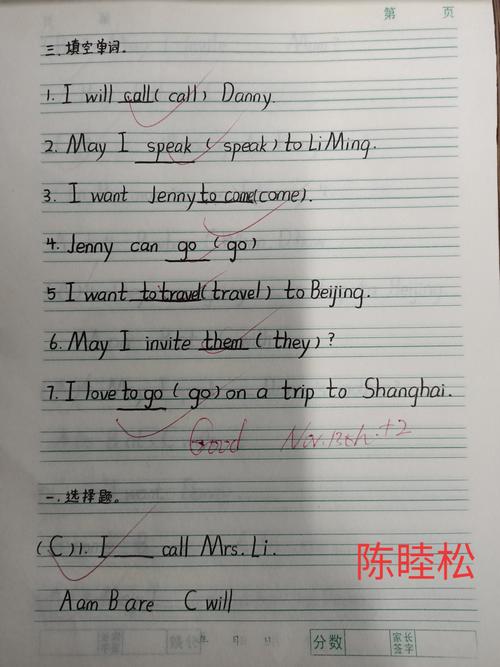 第 页
三.填空单词.
1. I will call (call) Danny.
2. May I speak (speak) to Li Ming.
3. I want Jenny to come (come).
4. Jenny can go (go)
5 I want to travel (travel) to Beijing.
6. May I invite them (they)?
7. I love to go (go) on a trip to Shanghai.
Good Nov.13th.+2
一.选择题。
(C) 1. I ___ call Mrs. Li.
陈睦松
A am B are C will
年 月 日 分数 家长签字